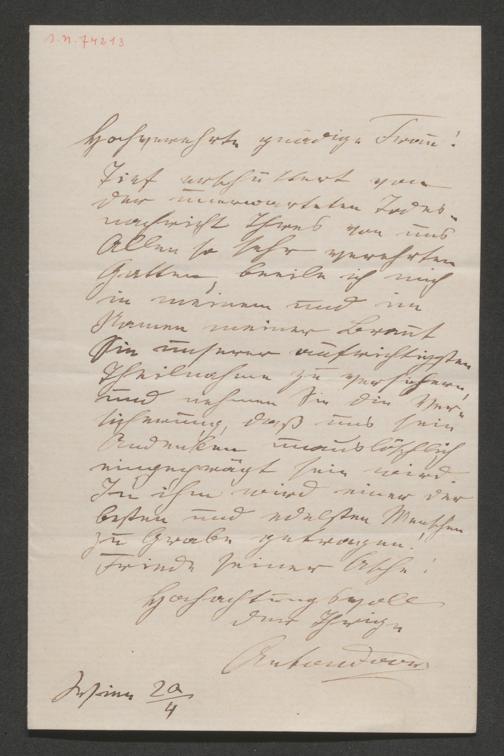 J.N. 74213
Hochverehrte gnädige Frau!
Tief erschüttert von
der unerwarteten Todes-
nachricht Ihres von uns
Allen so sehr verehrten
Gatten, beeile ich mich
in meinem und im
Namen meiner Braut
Sie unserer aufrichtigsten
Theilnahme zu versichern,
und nehmen Sie die Ver-
sicherung, daß uns sein
Andenken unauslöschlich
eingeprägt sein wird.
In ihm wird einer der
besten und edelsten Menschen
zu Grabe getragen!
Friede seiner Asche!
Hochachtungsvoll
der Ihrige
Anton
20/4